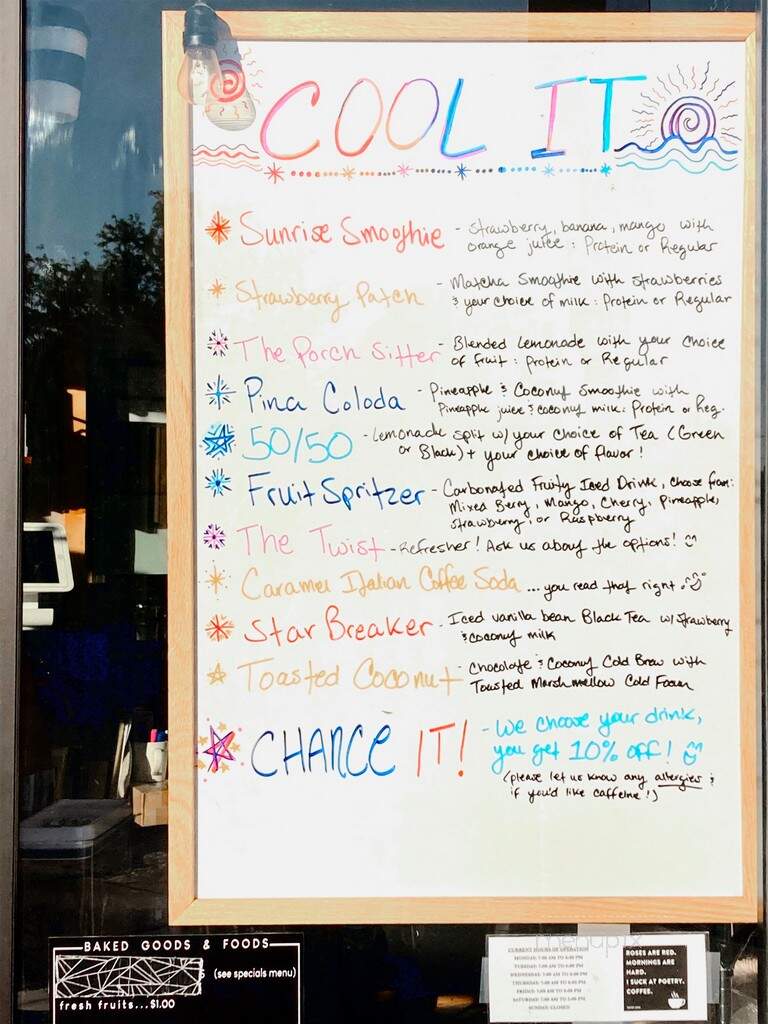 COOL IT
Sunrise Smoothie - strawberry, banana, mango with
orange juice : Protein or Regular
Strawberry Patch - Matcha Smoothie with strawberries
& your choice of milk : Protein or Regular
The Porch Sitter - Blended Lemonade with your choice
of fruit : Protein or Regular
Pina Coloda - Pineapple & Coconut Smoothie with
Pineapple juice & coconut milk : Protein or Reg.
50/50 - Lemonade split w/ your choice of Tea (Green
or Black) + your choice of flavor!
Fruit Spritzer - Carbonated Fruity Iced Drink, choose from:
Mixed Berry, Mango, Cherry, Pineapple,
strawberry, or Raspberry
The Twist - Refresher! Ask us about the options!
Caramel Italian Coffee Soda ...you read that right
Star Breaker - Iced vanilla bean Black Tea w/ strawberry
& coconut milk
Toasted Coconut - Chocolate & Coconut Cold Brew with
Toasted Marshmellow Cold Foam
CHANCE IT! - We choose your drink,
you get 10% off!
(please let us know any allergies &
if you'd like caffeine!)
BAKED GOODS & FOODS
(see specials menu)
fresh fruits...$1.00
menupix
CURRENT HOURS OF OPERATION
MONDAY: 7:00 AM TO 6:00 PM
TUESDAY: 7:00 AM TO 6:00 PM
WEDNESDAY: 7:00 AM TO 6:00 PM
THURSDAY: 7:00 AM TO 6:00 PM
FRIDAY: 7:00 AM TO 6:00 PM
SUNDAY: CLOSED
ROSES ARE RED.
MORNINGS ARE
HARD.
I SUCK AT POETRY.
COFFEE.